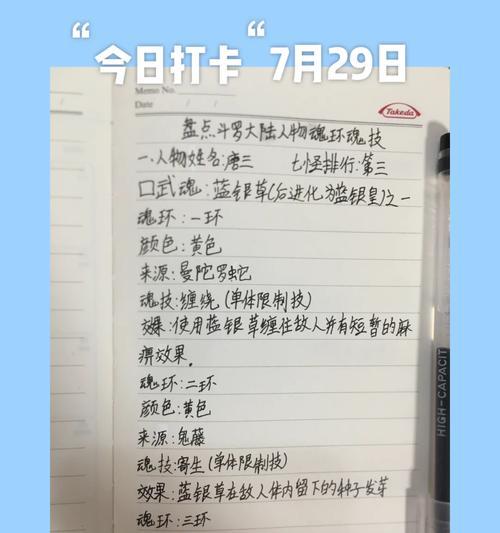 “今日打卡“ 7月29日
Memo No.
Date / /
Takeda
盘点斗罗大陆人物魂环魂技
一.人物姓名:唐三 七怪排行:第三
口武魂:蓝银草(后进化为蓝银皇)之一
魂环:一环
颜色:黄色
来源:曼陀罗蛇
魂技:缠绕(单体限制技)
效果:使用蓝银草缠住敌人并有短暂的麻
痹效果.
魂环:二环
颜色:黄色
来源:鬼藤
魂技:寄生(单体限制技)
效果:蓝银草在敌人体内留下的种子发芽
魂环:三环
HIGH-CAPACIT